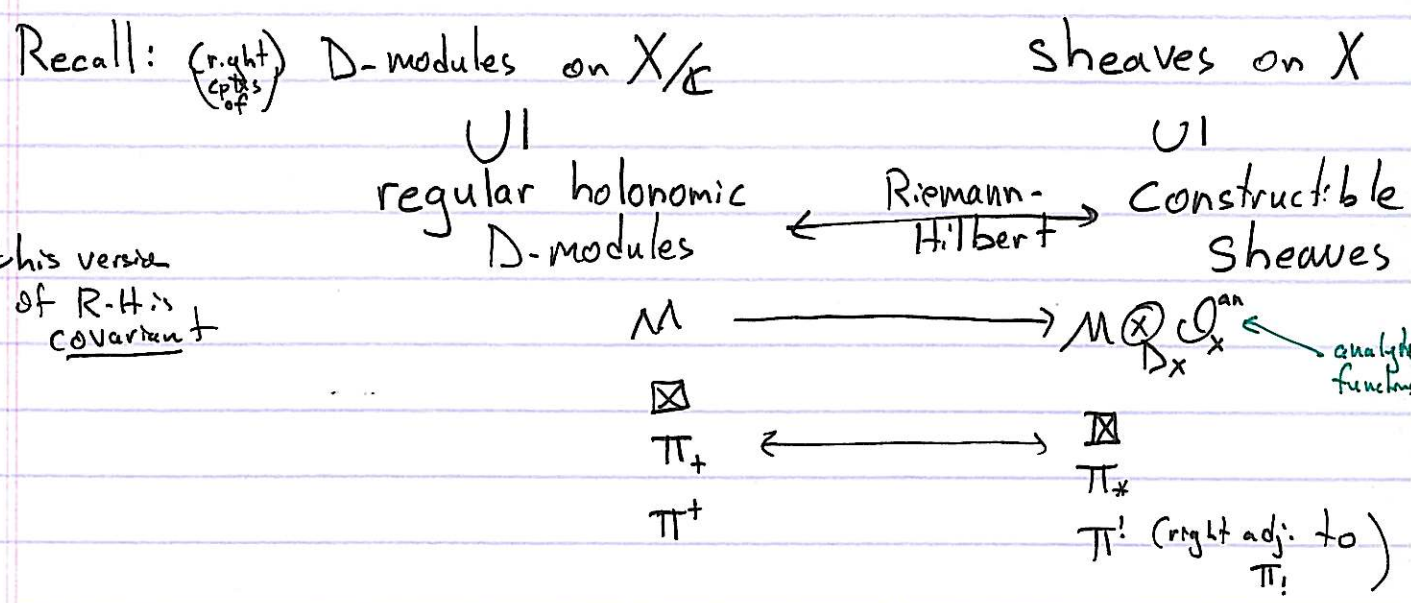 Recall: (right cptxs of) D-modules on X/ℂ    sheaves on X
∪|    ∪|
regular holonomic D-modules ⟷ Riemann-Hilbert constructible sheaves
this version of R-H is covariant
M ⟶ M ⊗_{D_X} O_X^{an} ←
⊠    ⊠
π_+ ⟷ π_*
π^+    π^! (right adj. to π_!)